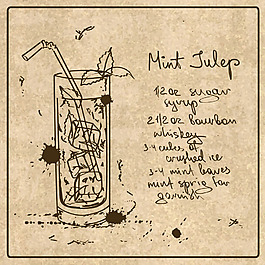 Mint Julep
1/2 oz sugar
syrup
2 1/2 oz bourbon
whiskey
3-4 cubes of
crushed ice
3-4 mint leaves
mint sprig for
garnish